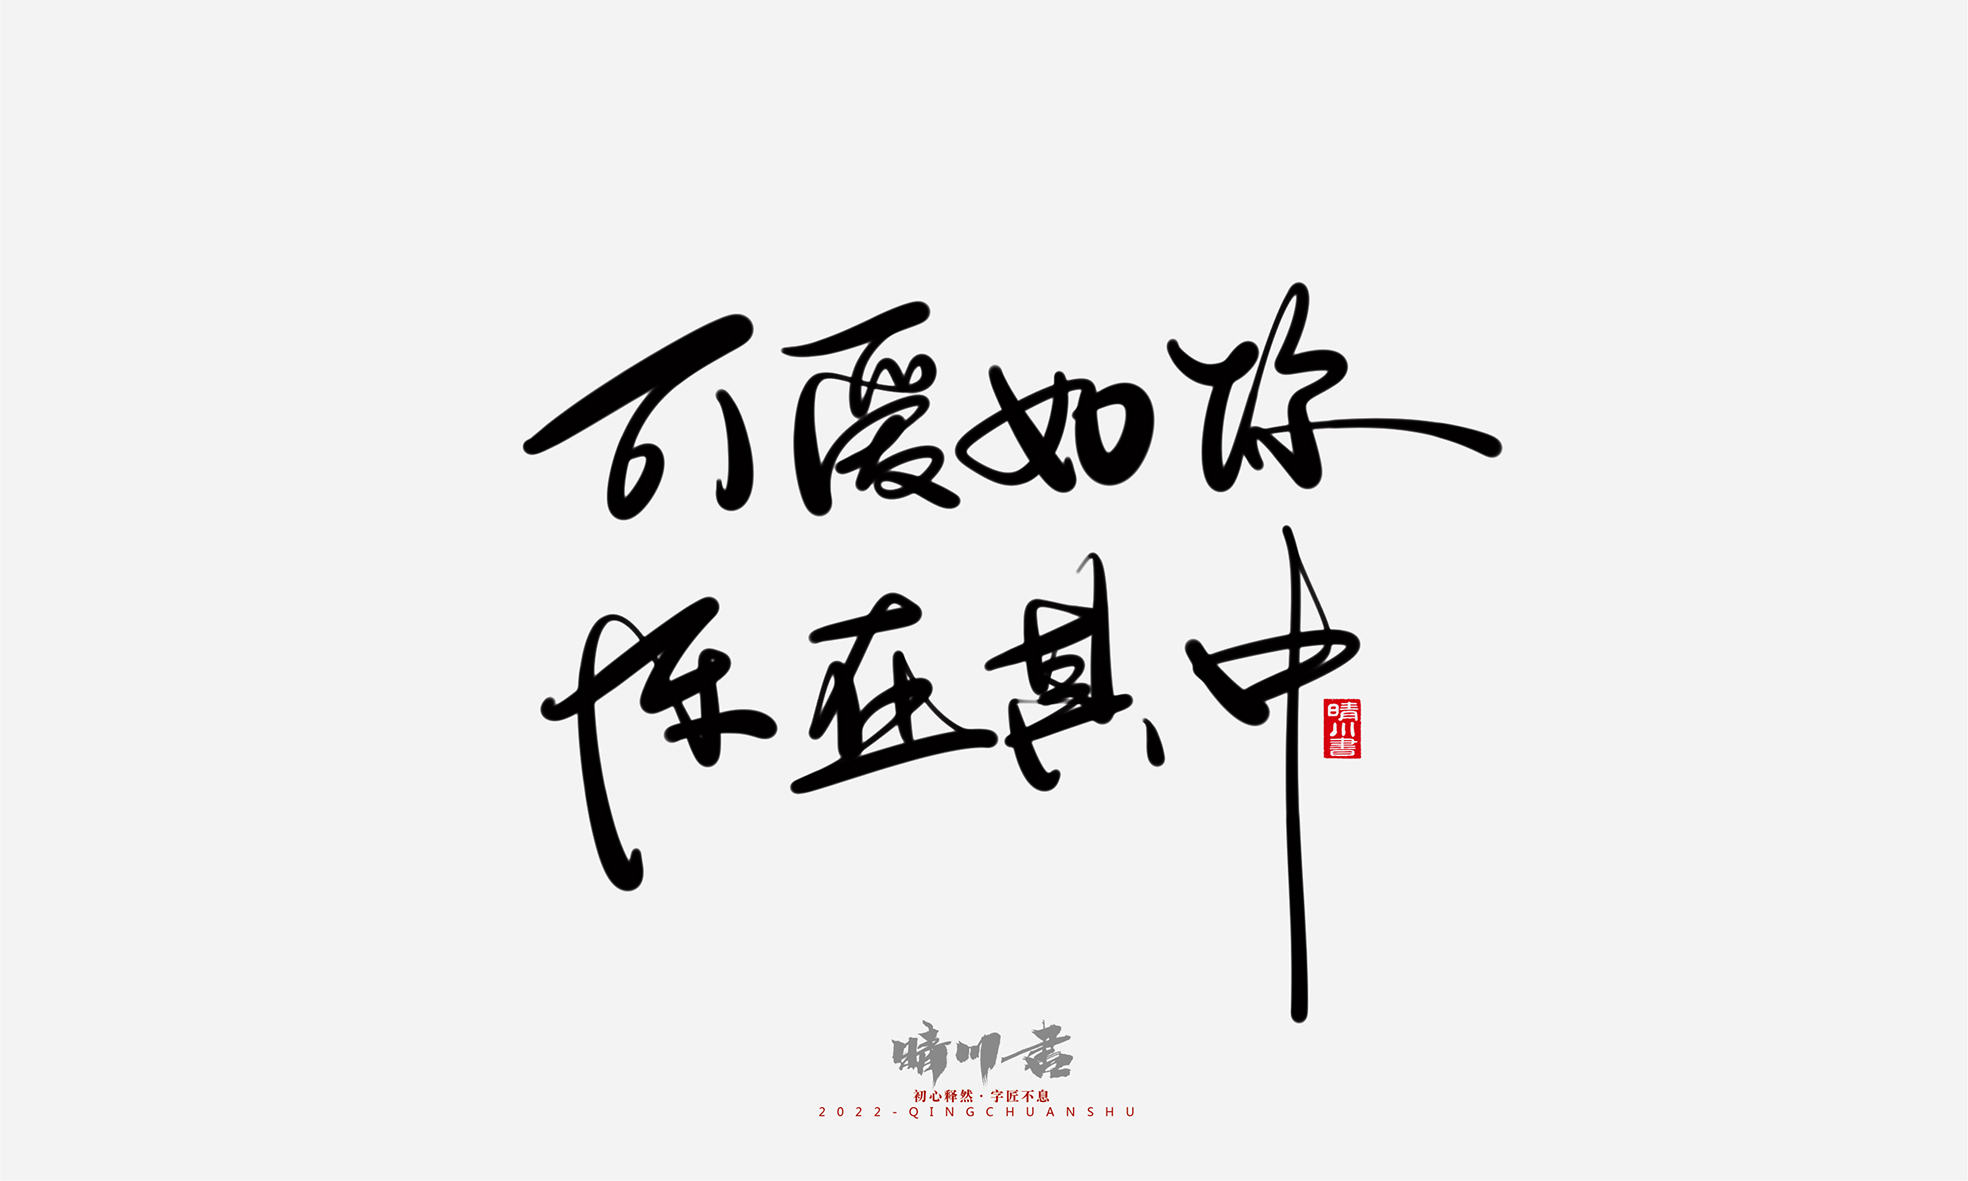 可爱如你
怀在其中
晴川書
晴川書
初心释然·字匠不息
2022-QINGCHUANSHU